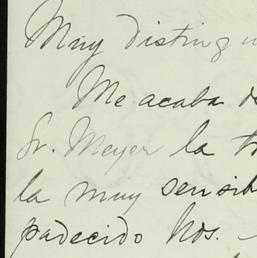 Muy distingu
Me acaba de
Sr. Meyer la tr
la muy sensib
padecido Nos. -